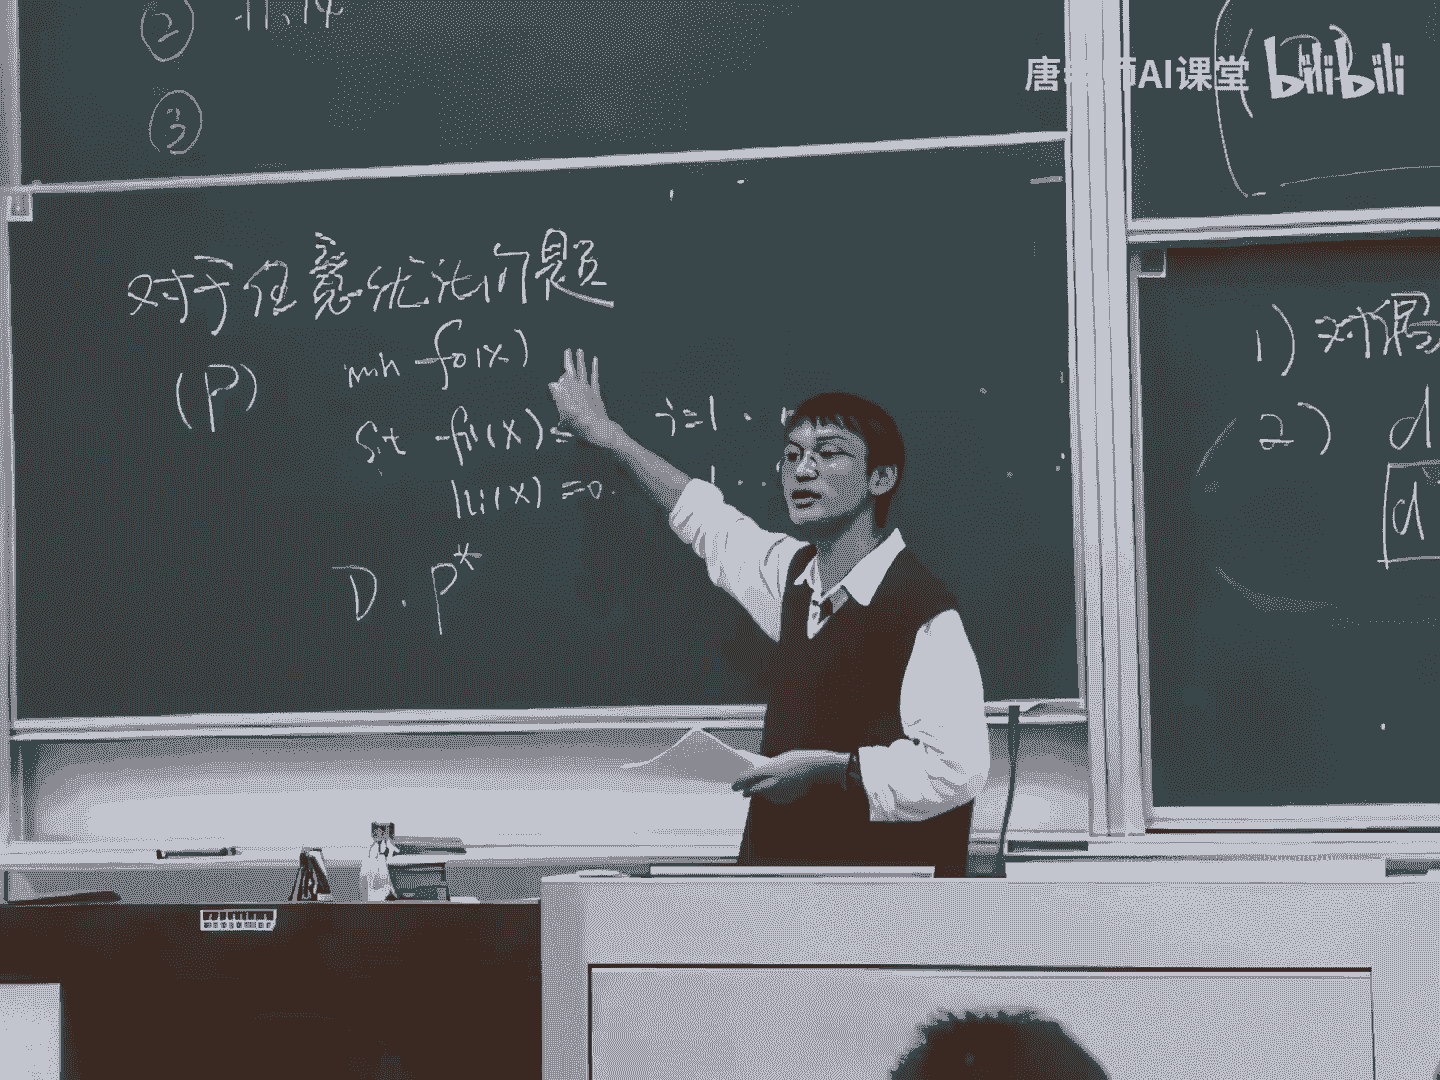 ② 11.14
③
唐 师AI课堂 bilibili
对于任意优化问题
(P) min f₀(x)
s.t. fi(x)≤ i=1 ·
hi(x) =0. 1 ..
D. P*
1) 对偶
2) d
d